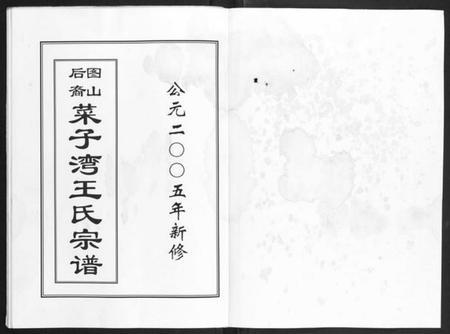 公元二〇〇五年新修
图山
后裔
菜子湾王氏宗谱